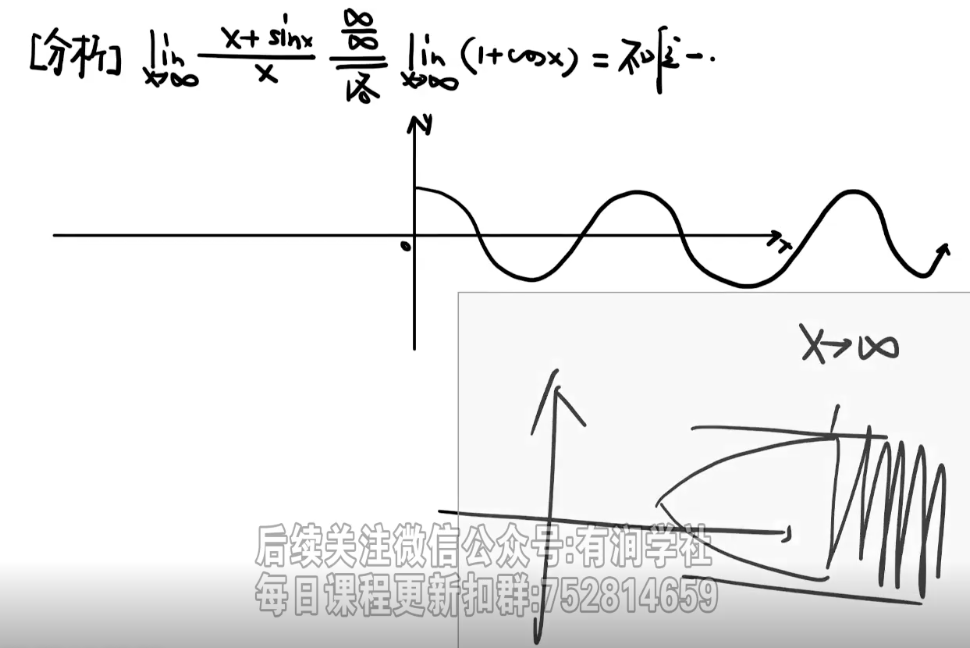 [分析] lim x→∞ (x+sinx)/x ∞/∞ 洛 lim x→∞ (1+cosx) = 不唯一.
y
0
x
x→∞
后续关注微信公众号:有润学社
每日课程更新扣群:752814659